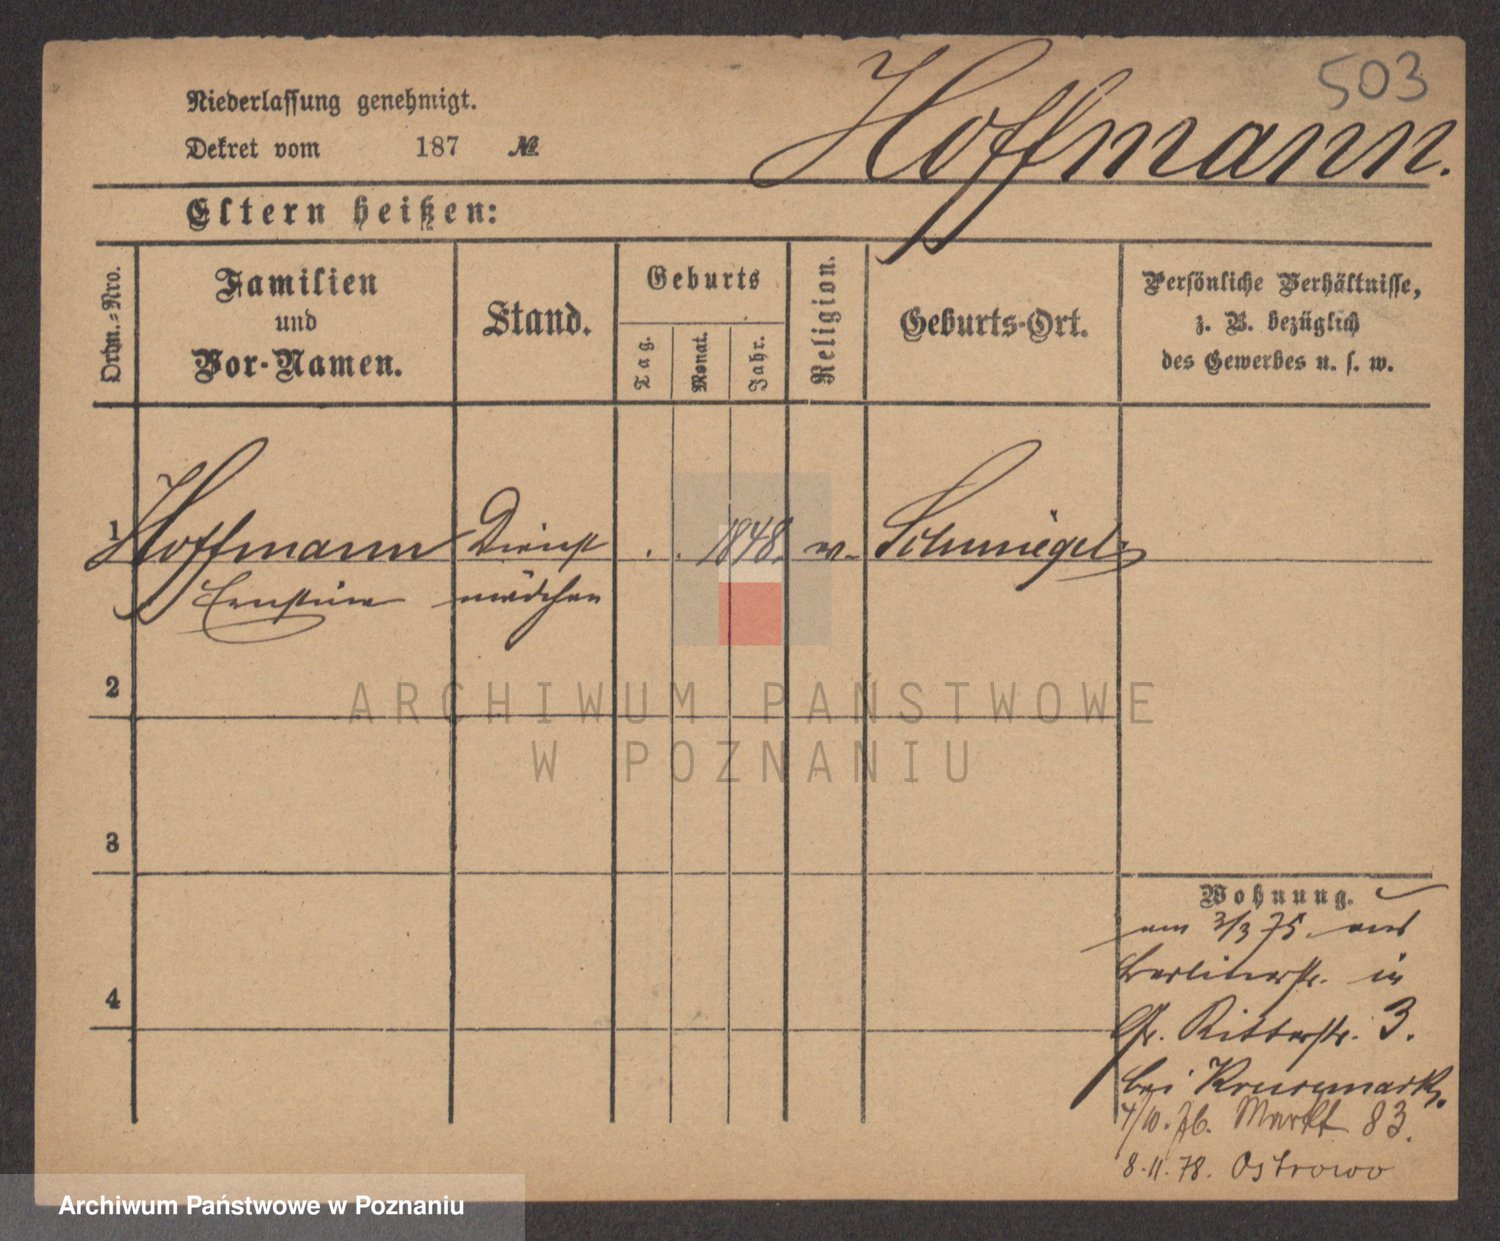 503
Hoffmann.
Niederlassung genehmigt.
Dekret vom 187 №
Eltern heißen:
Ordn.-Nro.
Familien
und
Vor-Namen.
Stand.
Geburts
Tag.
Monat.
Jahr.
Religion.
Geburts-Ort.
Persönliche Verhältnisse,
z. B. bezüglich
des Gewerbes u. s. w.
1 Hoffmann Dienst . . 1848. Schmiegel
Ernstine mädchen
2
3
4
Wohnung.
am 2/3 75. aus
Berlinerstr. in
Gr. Ritterstr. 3.
bei
Markt 83.
8.11.78. Ostrowo
ARCHIWUM PAŃSTWOWE
W POZNANIU
Archiwum Państwowe w Poznaniu